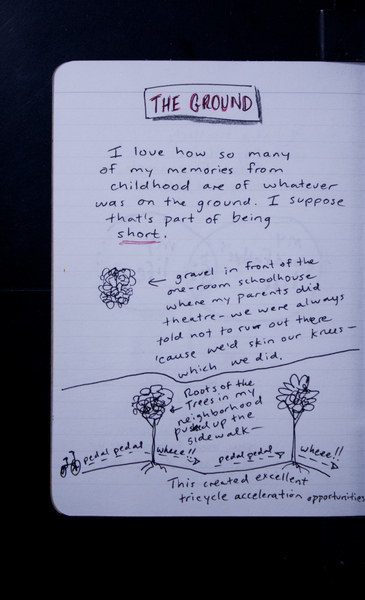 THE GROUND
I love how so many
of my memories from
childhood are of whatever
was on the ground. I suppose
that's part of being
short.
← gravel in front of the
one-room schoolhouse
where my parents did
theatre - we were always
told not to run out there
'cause we'd skin our knees -
which we did.
Roots of the
Trees in my
neighborhood
pushed up the
sidewalk -
pedal pedal
wheee!!
pedal pedal
wheee!!
This created excellent
tricycle acceleration opportunities